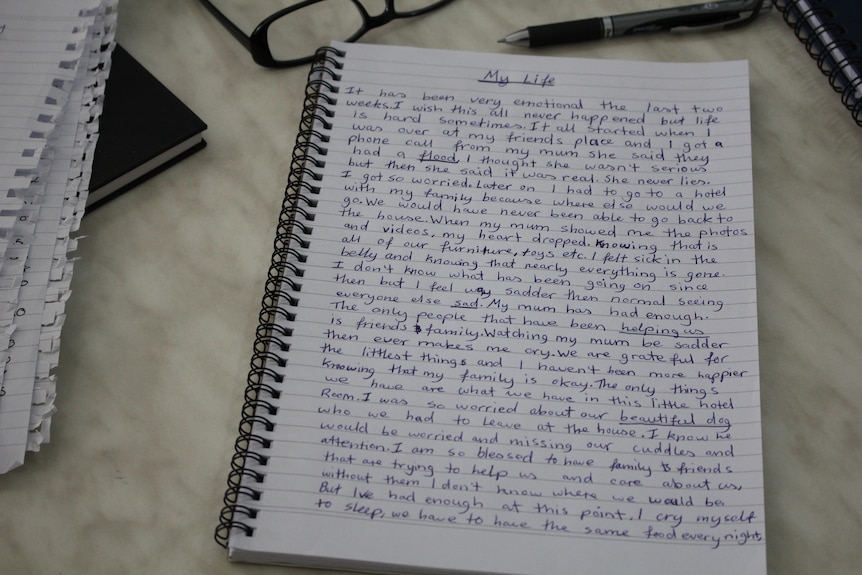 My Life
It has been very emotional the last two
weeks. I wish this all never happened but life
is hard sometimes. It all started when I
was over at my friends place and I got a
phone call from my mum she said they
had a flood, I thought she wasn't serious
but then she said it was real. She never lies.
I got so worried. Later on I had to go to a hotel
with my family because where else would we
go. We would have never been able to go back to
the house. When my mum showed me the photos
and videos, my heart dropped. Knowing that is
all of our furniture, toys etc. I felt sick in the
belly and knowing that nearly everything is gone.
I don't know what has been going on since
then but I feel way sadder then normal seeing
everyone else sad. My mum has had enough.
The only people that have been helping us
is friends & family. Watching my mum be sadder
then ever makes me cry. We are grateful for
the littlest things and I haven't been more happier
knowing that my family is okay. The only things
we have are what we have in this little hotel
Room. I was so worried about our beautiful dog
who we had to leave at the house. I know he
would be worried and missing our cuddles and
attention. I am so blessed to have family & friends
that are trying to help us and care about us,
without them I don't know where we would be.
But I've had enough at this point. I cry myself
to sleep, we have to have the same food every night,